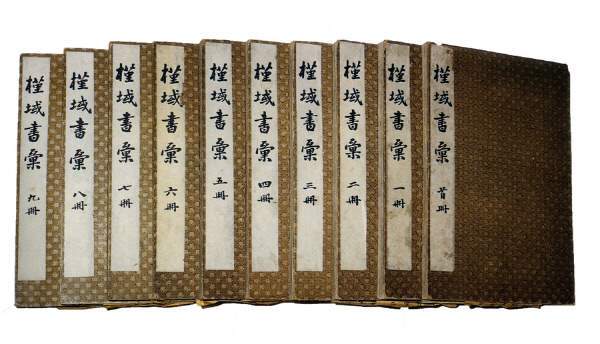 槿域書彙 首冊
槿域書彙 一冊
槿域書彙 二冊
槿域書彙 三冊
槿域書彙 四冊
槿域書彙 五冊
槿域書彙 六冊
槿域書彙 七冊
槿域書彙 八冊
槿域書彙 九冊